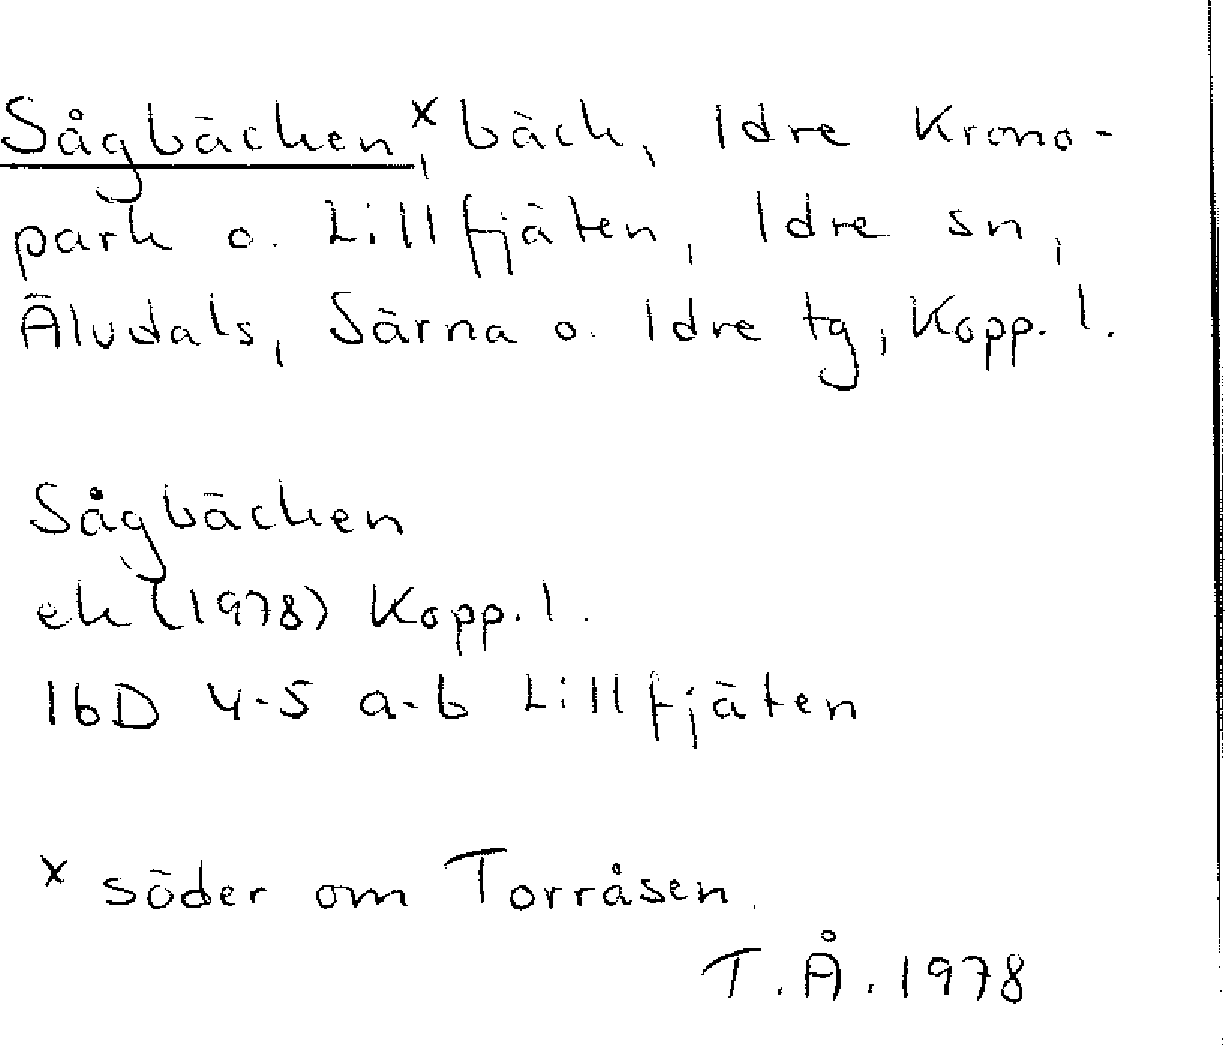 Sågbäcken,ˣ bäck, Idre Krono-
park o. Lillfjäten, Idre sn,
Älvdals, Särna o. Idre tg, Kopp. l.
Sågbäcken
ek (1978) Kopp. l.
16D 4-5 a-b Lillfjäten
x söder om Torråsen.
T.Å. 1978